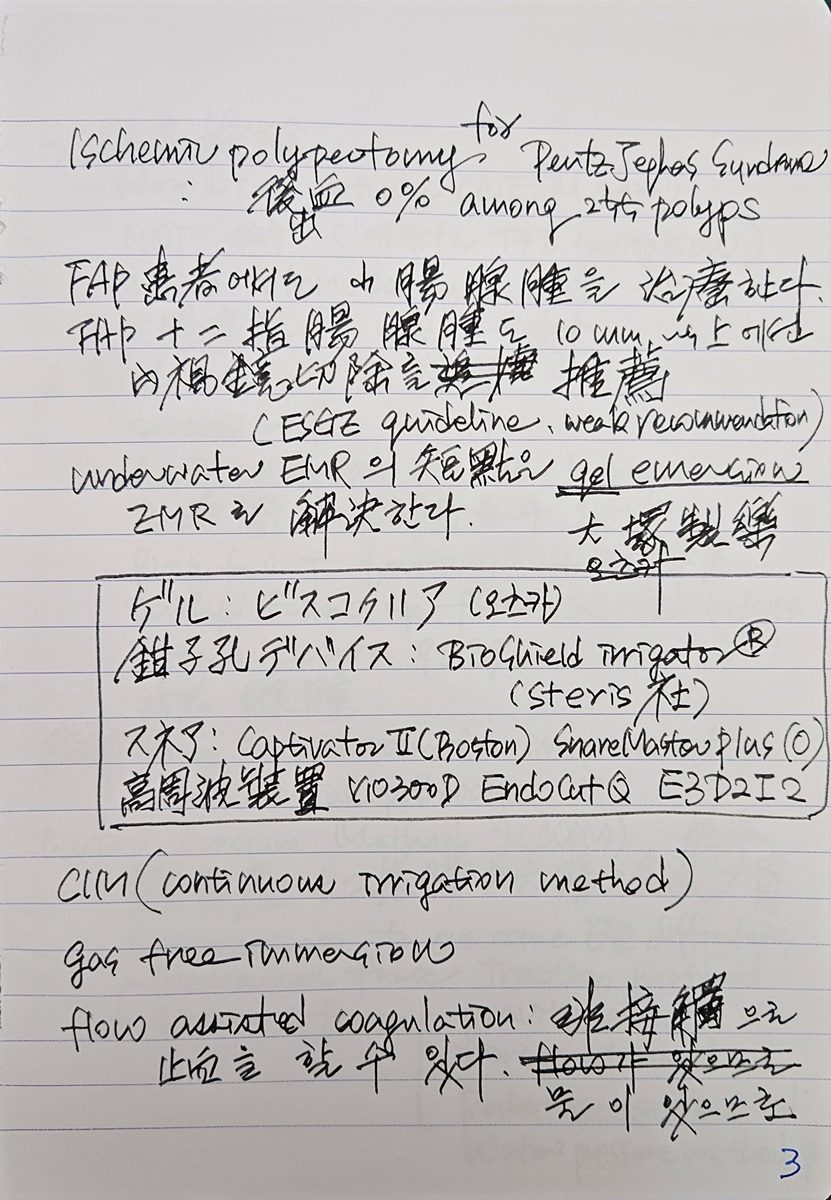 Ischemic polypectomy for Peutz Jeghes Syndrome
: 後出血 0% among polyps
FAP 患者에서도 小腸腺腫을 治療한다.
FAP + 二指腸 腺腫도 10mm 以上에선
内視鏡 切除를 推薦
(ESGE guideline, weak recommendation)
underwater EMR의 短點은 gel emersion
EMR로 解決한다.
大塚製藥
오츠카
ゲル: ビスコクリア (오츠카)
鉗子孔デバイス: BioShield irrigator®
(Steris社)
スネア: Captivator II (Boston) SnareMaster plus (O)
高周波装置 VIO300D EndoCut Q E3D2I2
CIM (continuous irrigation method)
gas free immersion
flow assisted coagulation: 非接觸으로
止血을 할 수 있다. flow가 있으므로
물이 있으므로
3